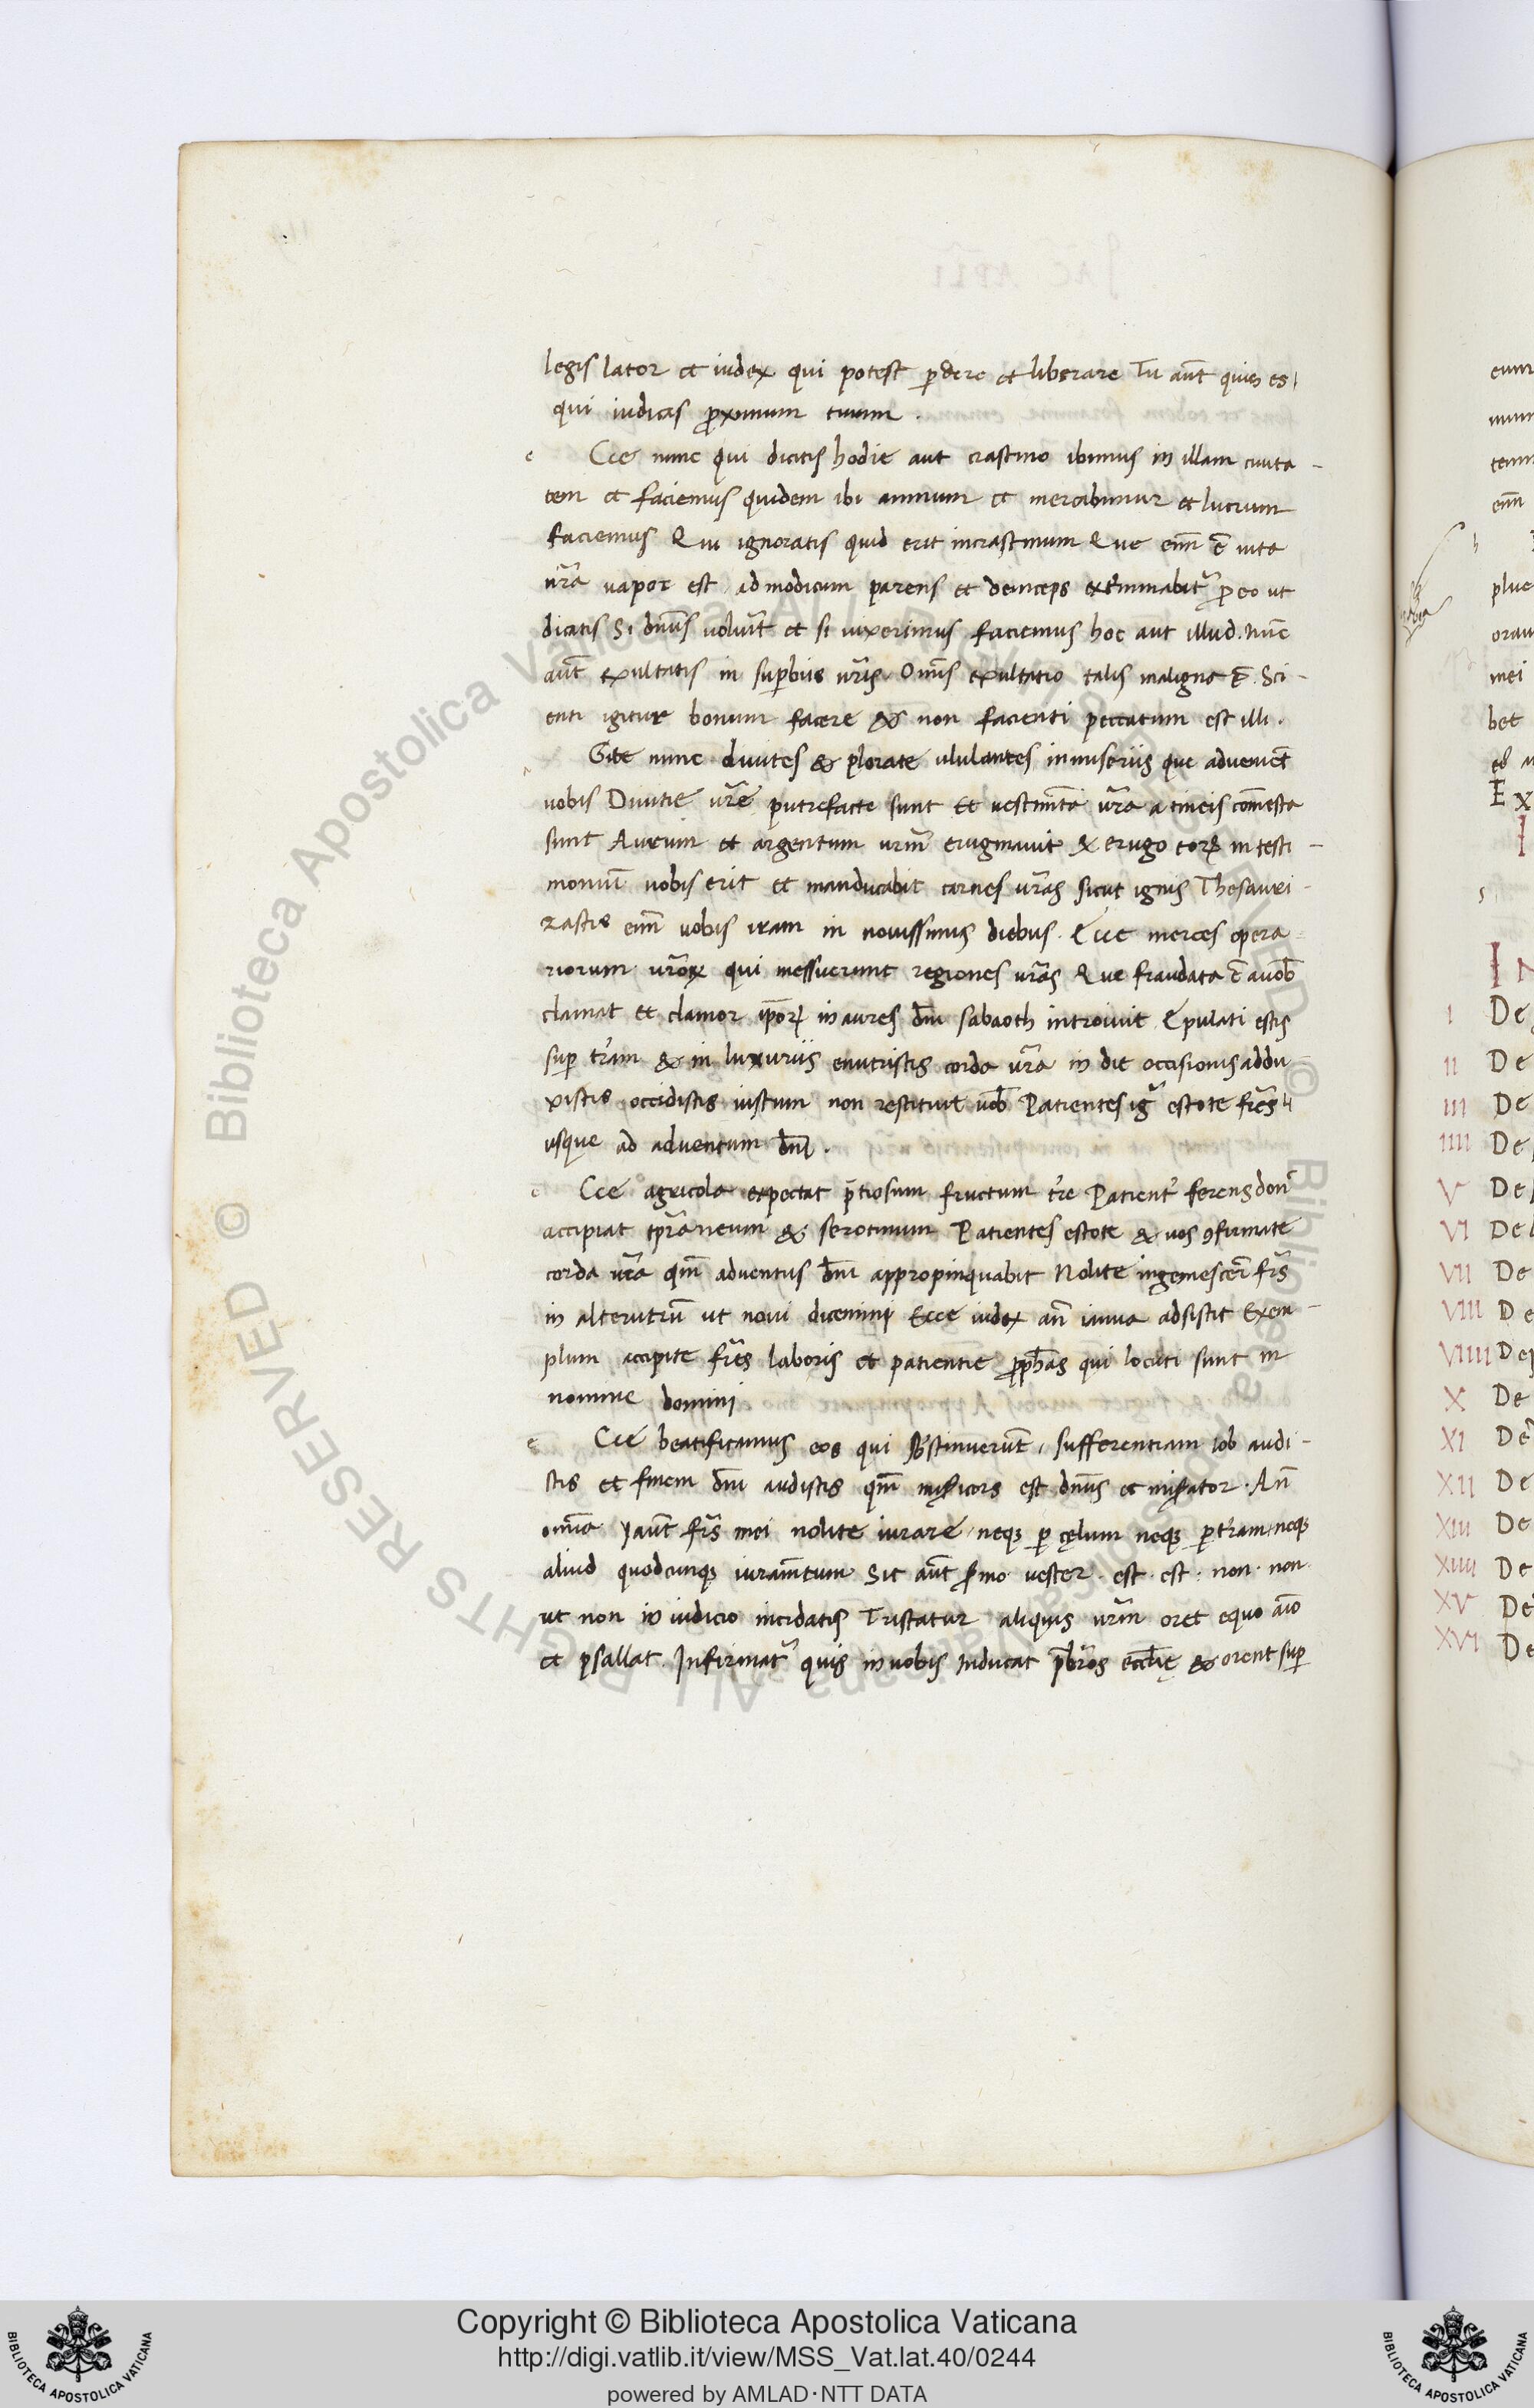 legislator et iudex qui potest ꝑdere et liberare Tu aūt quis es
qui iudicas ꝓximum tuum .
e Cce nunc qui dicitis hodie aut crastino ibimus in illam ciuita -
tem et faciemus quidem ibi annum et mercabimur et lucrum
faciemus Qui ignoratis quid erit incrastinum Que enī̄ ē uita
ur̄a vapor est ad modicum parens et deinceps ext̄minabit̄ ꝓ eo ut
dicatis Si dn̄us voluīt et si vixerimus faciemus hoc aut illud. nūc
aūt exultatis in suꝑbiis ur̄is. Omīs exultatio talis maligna ē. Sci -
enti igitur bonum facere & non facienti peccatum est illi .
Gite nunc divites & plorate ululantes inmiseriis que advenīēt
uobis Divitie ur̄e putrefacte sunt Et vestimēta ur̄a a tineis comesta
sunt Aurum et argentum ur̄m eruginauit & erugo eoꝝ in testi -
moniū uobis erit et manducabit carnes ur̄as sicut ignis Thesauri -
zastis enī̄ vobis iram in novissimis diebus. Ecce merces opera
riorum ur̄oꝝ qui messuerunt regiones ur̄as Que fraudata ē auob̄
clamat et clamor ip̄oꝝ in aures dn̄i sabaoth introivit Epulati estis
suꝑ tr̄am & in luxuriis enutristis corda ur̄a in die occisionis addu -
xistis occidistis iustum non restituit uob̄ Patientes iḡ estote fr̄es
usque ad adventum dn̄i .
e Cce agricola expectat p̄tiosum fructum tr̄e Patient̄ ferens don̄
accipiat tp̄raneum & serotinum Patientes estote & uos ꝯfirmate
corda ur̄a qm̄ adventus dn̄i appropinquabit Nolite ingemescer̄ fr̄s
in alterutrū ut non iudicemini Ecce iudex an̄ ianua adsistit Exem -
plum accipite fr̄es laboris et patientie ꝓph̄as qui locuti sunt in
nomine domini
e Cce beatificamus eos qui sustinuerūt, sufferentiam iob audi -
stis et finem dn̄i audistis qm̄ mis̄icors est dn̄us et mis̄ator. An̄
omīa aūt fr̄s mei nolite iurare neqꝫ ꝑ cęlum neqꝫ ꝑ tr̄am neqꝫ
aliud quodcunqꝫ iuram̄tum Sit aūt s̄mo vester . est . est : non . non .
ut non in iudicio incidatis Tristatur aliquis ur̄m oret equo aīo
et psallat . Infirmat̄ quis in uobis Inducat p̄br̄os eccl̄ię & orent suꝑ
I
II De
III De
IIII De
V De
VI De
VII De
VIII De
VIIII De
X De
XI De
XII De
XIII De
XIIII De
XV De
XVI De
Copyright © Biblioteca Apostolica Vaticana
http://digi.vatlib.it/view/MSS_Vat.lat.40/0244
powered by AMLAD·NTT DATA
BIBLIOTECA APOSTOLICA VATICANA
BIBLIOTECA APOSTOLICA VATICANA
© Biblioteca Apostolica Vaticana ALL RIGHTS RESERVED